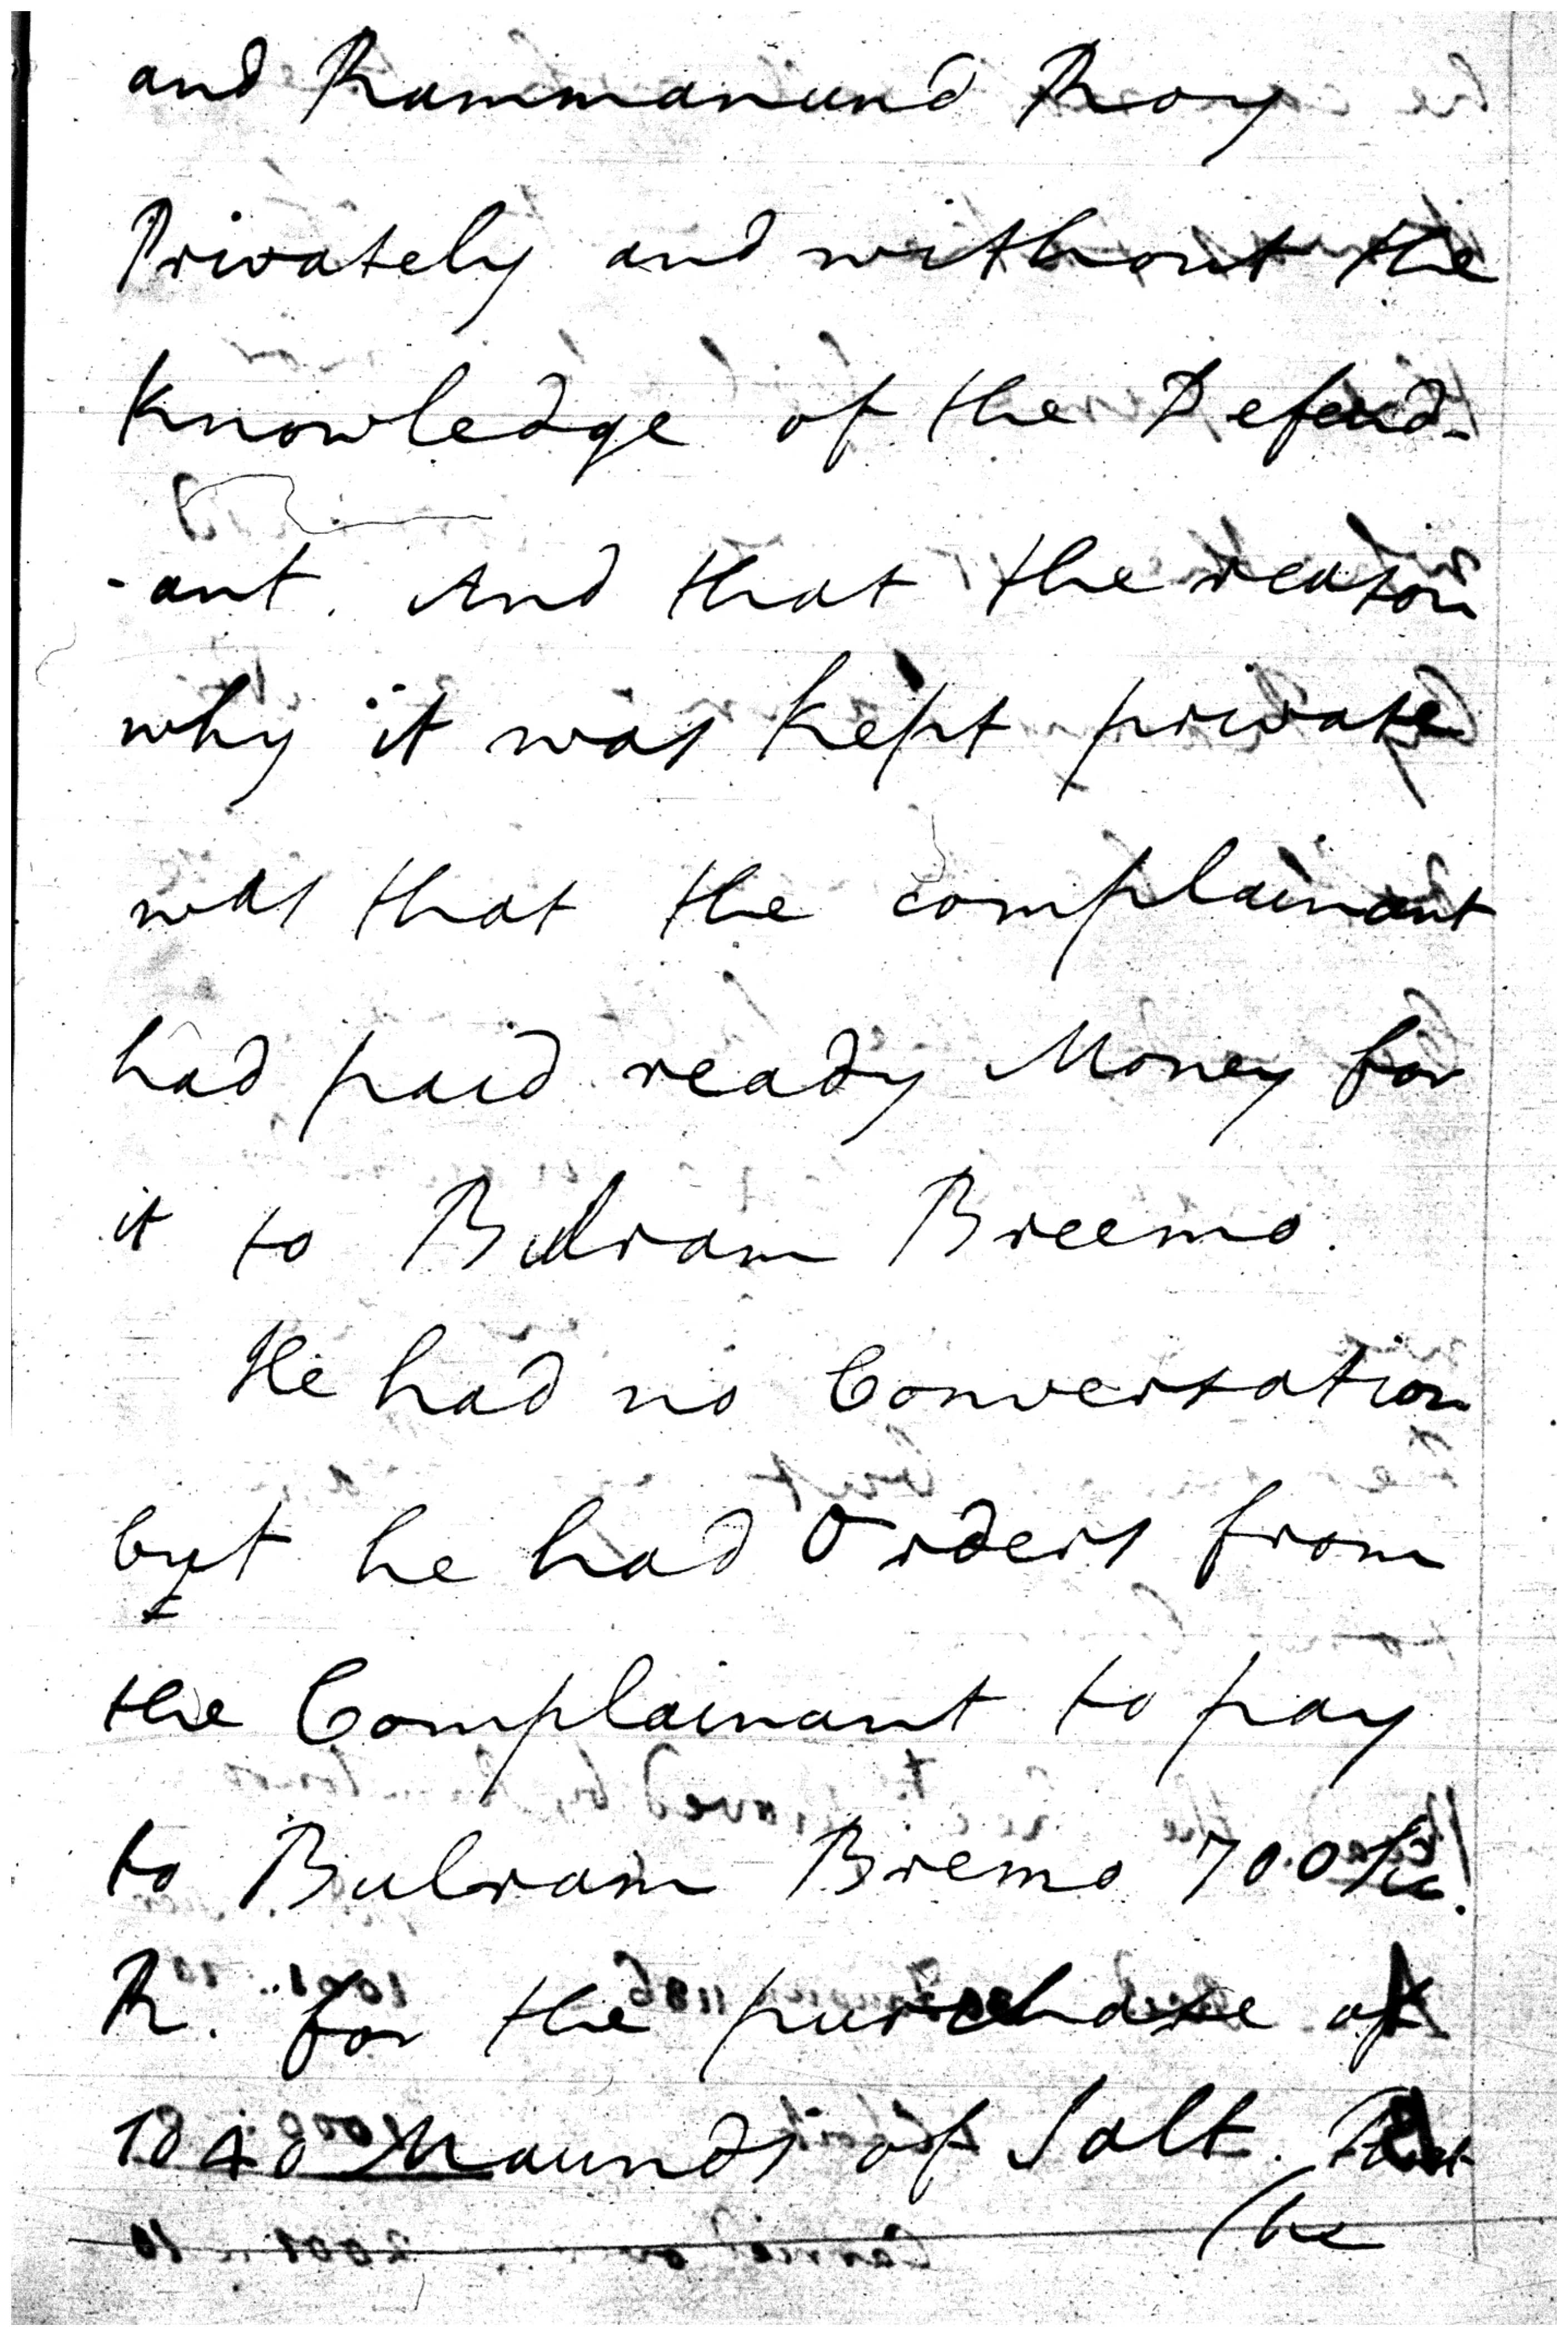 and Rammanund Roy
Privately and without the
Knowledge of the Defend-
-ant. And that the reason
why it was kept private
was that the complainant
had paid ready Money for
it to Bulram Breemo.
He had no Conversation
but he had Orders from
the Complainant to pay
to Bulram Bremo 700 Sic.
R. for the purchase of
1840 Maunds of Salt. That
(he